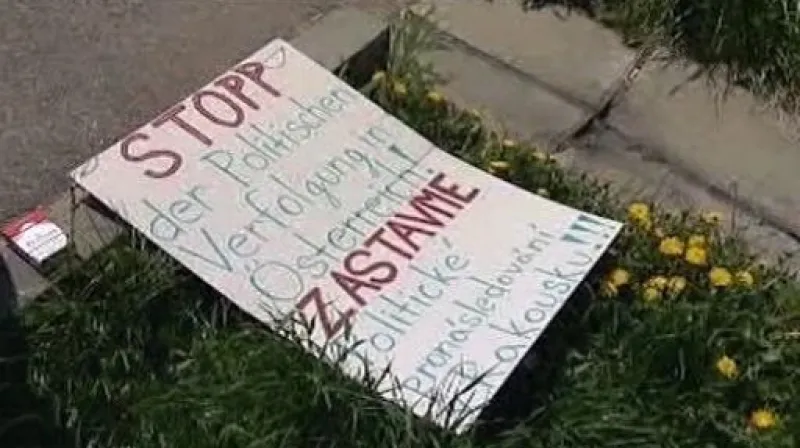 STOPP
der Politischen
Verfolgung in
Österreich!
ZASTAVME
Politické
pronásledování
v Rakousku!!!